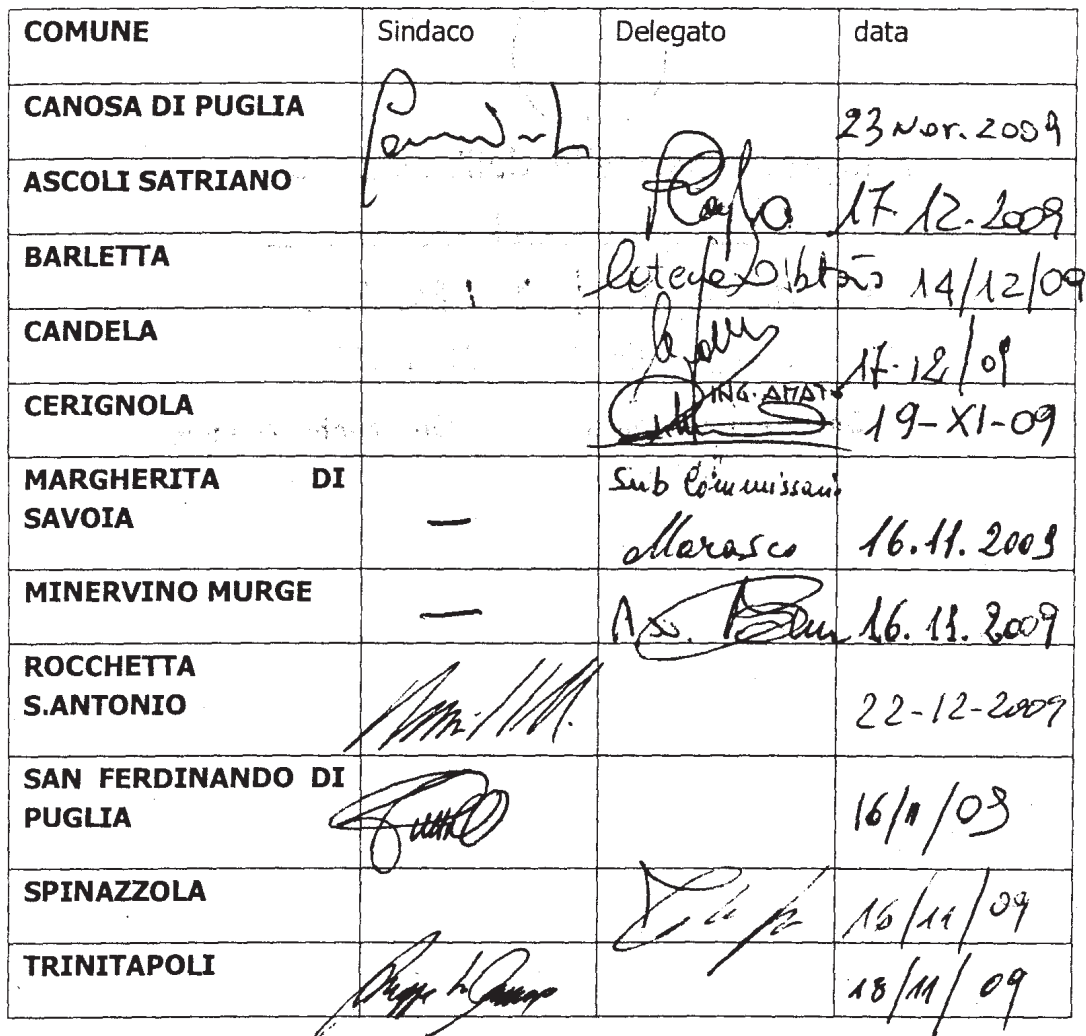 COMUNE Sindaco Delegato data
CANOSA DI PUGLIA 23 Nov. 2009
ASCOLI SATRIANO 17.12.2009
BARLETTA 14/12/09
CANDELA 17-12/09
CERIGNOLA ING. AMAT 19-XI-09
MARGHERITA DI Sub Commissario
SAVOIA — Marasco 16.11.2009
MINERVINO MURGE — Ass. 16.11.2009
ROCCHETTA
S.ANTONIO 22-12-2009
SAN FERDINANDO DI
PUGLIA 16/11/09
SPINAZZOLA 16/11/09
TRINITAPOLI 18/11/09